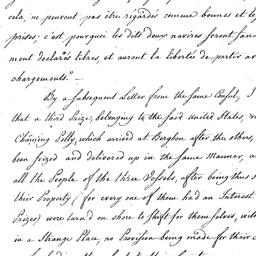 cela, ne peuvent pas être regardés comme bonnes et le
prises; c'est pourquoi les dits deux navires seront san
ment declarés libres, et auront la liberté de partir av
chargements."
By a subsequent Letter from the same Consul, I
that a third Prize, belonging to the said United States, 
Charming Polly, which arrived at Berghen after the others,
been seized and delivered up in the same Manner, a
all the People of the three Vessels, after being thus s
their Property (for every one of them had an Interest
Prizes) were turn'd on shore to shift for themselves, wit
in a Strange Place, no Provision being made for their